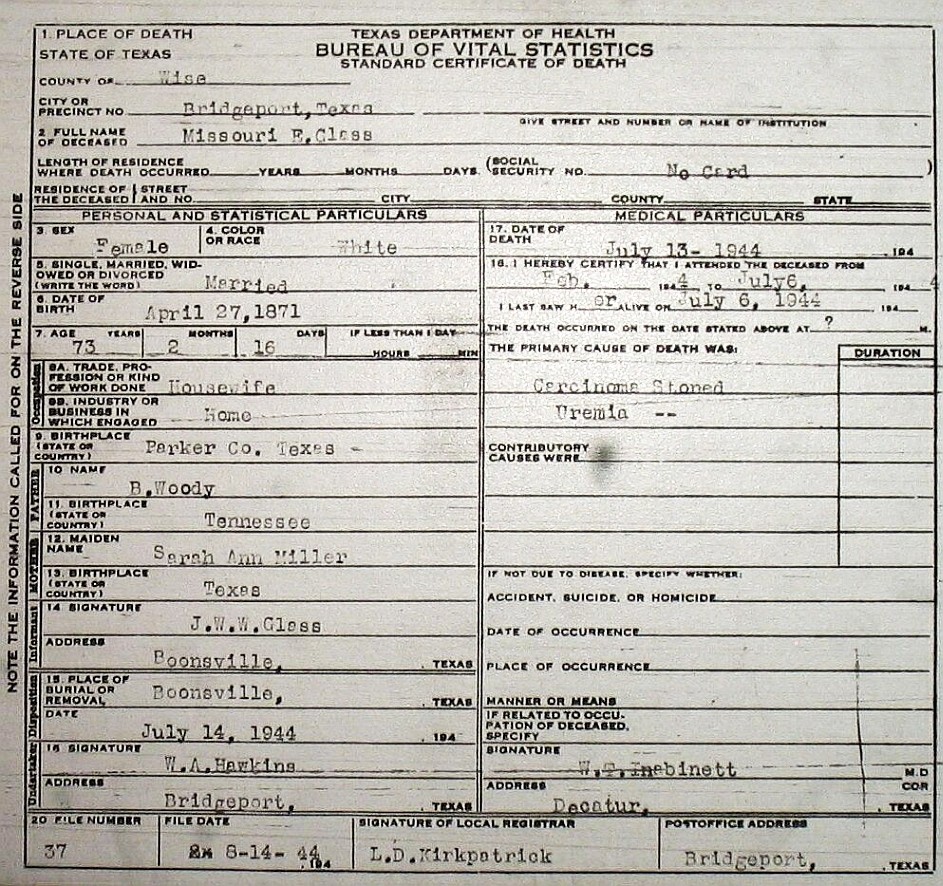 NOTE THE INFORMATION CALLED FOR ON THE REVERSE SIDE
1. PLACE OF DEATH
STATE OF TEXAS
TEXAS DEPARTMENT OF HEALTH
BUREAU OF VITAL STATISTICS
STANDARD CERTIFICATE OF DEATH
COUNTY OF Wise
CITY OR
PRECINCT NO. Bridgeport, Texas
GIVE STREET AND NUMBER OR NAME OF INSTITUTION
2. FULL NAME
OF DECEASED Missouri E. Glass
LENGTH OF RESIDENCE
WHERE DEATH OCCURRED YEARS MONTHS DAYS (SOCIAL
SECURITY NO. No Card )
RESIDENCE OF STREET
THE DECEASED AND NO. CITY COUNTY STATE
PERSONAL AND STATISTICAL PARTICULARS
3. SEX
Female
4. COLOR
OR RACE White
5. SINGLE, MARRIED, WID-
OWED OR DIVORCED
(WRITE THE WORD) Married
6. DATE OF
BIRTH April 27, 1871
7. AGE YEARS MONTHS DAYS IF LESS THAN 1 DAY
73 2 16 HOURS MIN
Occupation
8A. TRADE, PRO-
FESSION OR KIND
OF WORK DONE Housewife
8B. INDUSTRY OR
BUSINESS IN
WHICH ENGAGED Home
9. BIRTHPLACE
(STATE OR
COUNTRY) Parker Co. Texas -
FATHER
10 NAME
B. Woody
11. BIRTHPLACE
(STATE OR
COUNTRY) Tennessee
MOTHER
12. MAIDEN
NAME Sarah Ann Miller
13. BIRTHPLACE
(STATE OR
COUNTRY) Texas
Informant
14 SIGNATURE
J.W.W. Glass
ADDRESS
Boonsville, , TEXAS
Disposition
15. PLACE OF
BURIAL OR
REMOVAL, Boonsville, , TEXAS
DATE
July 14, 1944 , 194
Undertaker
16 SIGNATURE
W.A. Hawkins
ADDRESS
Bridgeport, , TEXAS
MEDICAL PARTICULARS
17. DATE OF
DEATH July 13- 1944 , 194
18. I HEREBY CERTIFY THAT I ATTENDED THE DECEASED FROM
Feb. 194 4 TO July 6, 194 4
I LAST SAW H er ALIVE ON July 6, 1944 , 194
THE DEATH OCCURRED ON THE DATE STATED ABOVE AT ? M.
THE PRIMARY CAUSE OF DEATH WAS: DURATION
Carcinoma Stoned
Uremia --
CONTRIBUTORY
CAUSES WERE
IF NOT DUE TO DISEASE, SPECIFY WHETHER:
ACCIDENT, SUICIDE, OR HOMICIDE
DATE OF OCCURRENCE
PLACE OF OCCURRENCE
MANNER OR MEANS
IF RELATED TO OCCU-
PATION OF DECEASED,
SPECIFY
SIGNATURE
W.T. Inabinett M.D
ADDRESS COR
Decatur, , TEXAS
20 FILE NUMBER
37
FILE DATE
8-14- 44 , 194
SIGNATURE OF LOCAL REGISTRAR
L.D. Kirkpatrick
POSTOFFICE ADDRESS
Bridgeport, , TEXAS